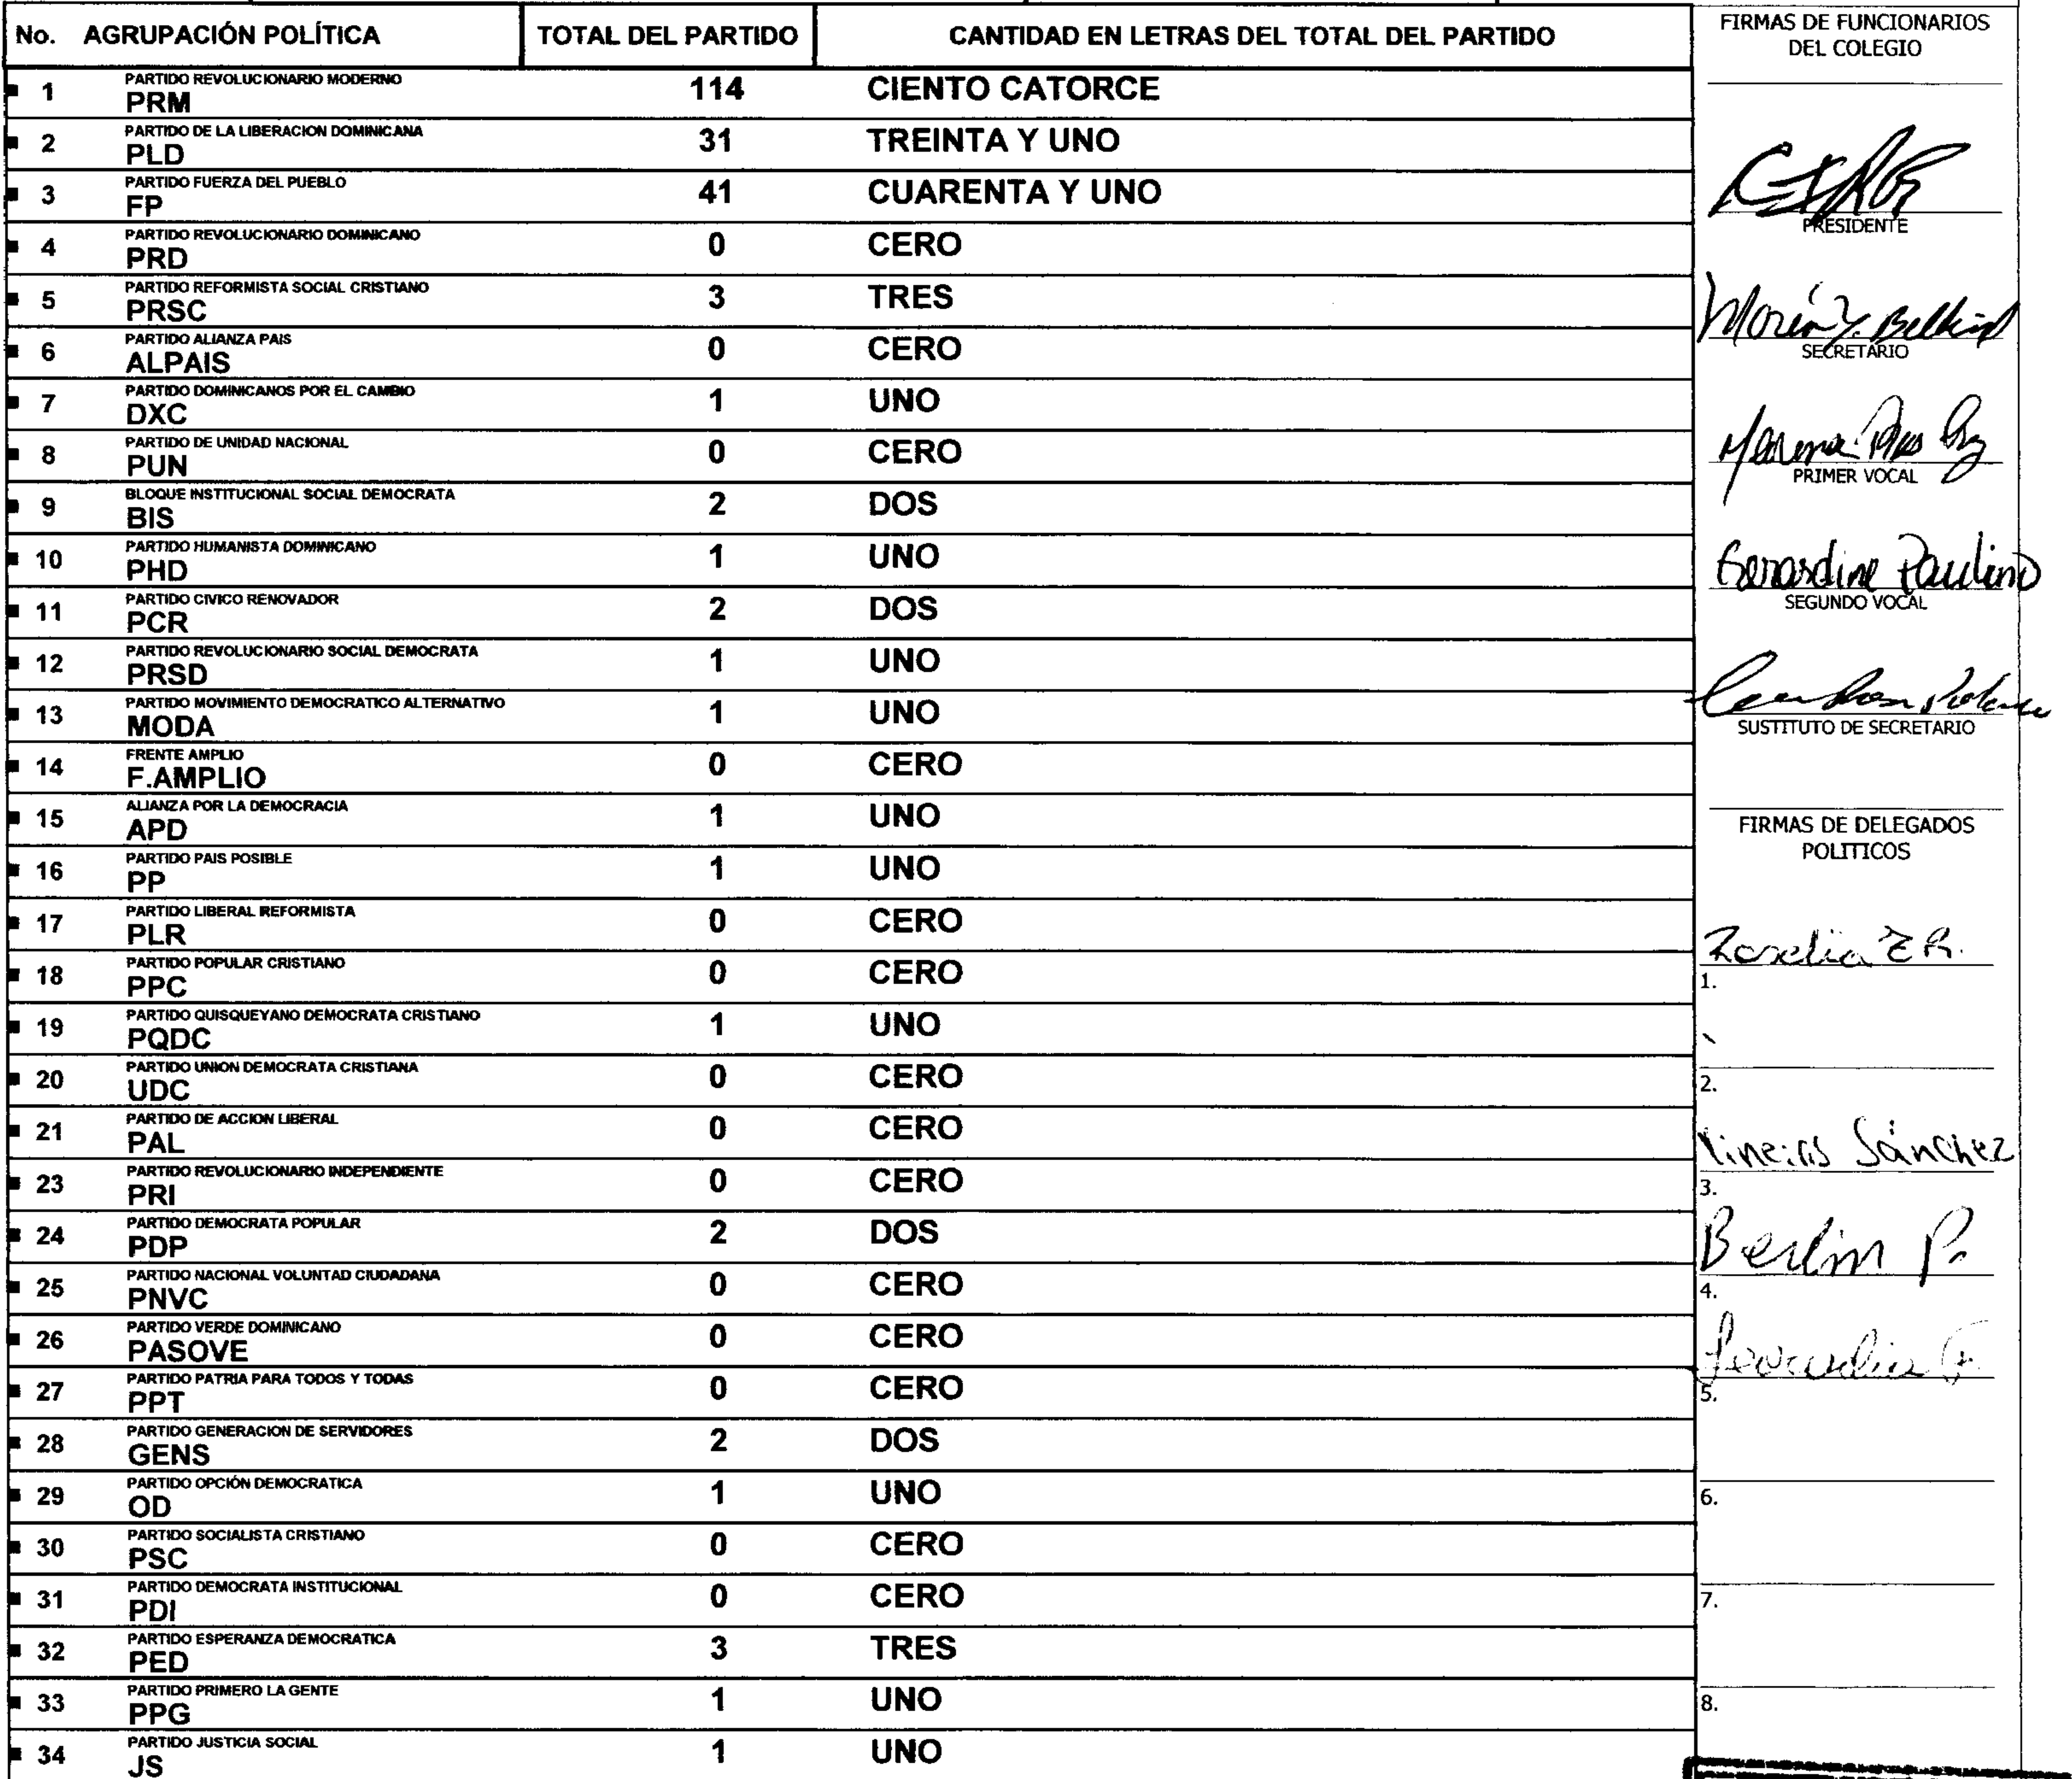 No. AGRUPACIÓN POLÍTICA TOTAL DEL PARTIDO CANTIDAD EN LETRAS DEL TOTAL DEL PARTIDO
PARTIDO REVOLUCIONARIO MODERNO
1 PRM 114 CIENTO CATORCE
PARTIDO DE LA LIBERACION DOMINICANA
2 PLD 31 TREINTA Y UNO
PARTIDO FUERZA DEL PUEBLO
3 FP 41 CUARENTA Y UNO
PARTIDO REVOLUCIONARIO DOMINICANO
4 PRD 0 CERO
PARTIDO REFORMISTA SOCIAL CRISTIANO
5 PRSC 3 TRES
PARTIDO ALIANZA PAIS
6 ALPAIS 0 CERO
PARTIDO DOMINICANOS POR EL CAMBIO
7 DXC 1 UNO
PARTIDO DE UNIDAD NACIONAL
8 PUN 0 CERO
BLOQUE INSTITUCIONAL SOCIAL DEMOCRATA
9 BIS 2 DOS
PARTIDO HUMANISTA DOMINICANO
10 PHD 1 UNO
PARTIDO CIVICO RENOVADOR
11 PCR 2 DOS
PARTIDO REVOLUCIONARIO SOCIAL DEMOCRATA
12 PRSD 1 UNO
PARTIDO MOVIMIENTO DEMOCRATICO ALTERNATIVO
13 MODA 1 UNO
FRENTE AMPLIO
14 F.AMPLIO 0 CERO
ALIANZA POR LA DEMOCRACIA
15 APD 1 UNO
PARTIDO PAIS POSIBLE
16 PP 1 UNO
PARTIDO LIBERAL REFORMISTA
17 PLR 0 CERO
PARTIDO POPULAR CRISTIANO
18 PPC 0 CERO
PARTIDO QUISQUEYANO DEMOCRATA CRISTIANO
19 PQDC 1 UNO
PARTIDO UNION DEMOCRATA CRISTIANA
20 UDC 0 CERO
PARTIDO DE ACCION LIBERAL
21 PAL 0 CERO
PARTIDO REVOLUCIONARIO INDEPENDIENTE
23 PRI 0 CERO
PARTIDO DEMOCRATA POPULAR
24 PDP 2 DOS
PARTIDO NACIONAL VOLUNTAD CIUDADANA
25 PNVC 0 CERO
PARTIDO VERDE DOMINICANO
26 PASOVE 0 CERO
PARTIDO PATRIA PARA TODOS Y TODAS
27 PPT 0 CERO
PARTIDO GENERACION DE SERVIDORES
28 GENS 2 DOS
PARTIDO OPCIÓN DEMOCRATICA
29 OD 1 UNO
PARTIDO SOCIALISTA CRISTIANO
30 PSC 0 CERO
PARTIDO DEMOCRATA INSTITUCIONAL
31 PDI 0 CERO
PARTIDO ESPERANZA DEMOCRATICA
32 PED 3 TRES
PARTIDO PRIMERO LA GENTE
33 PPG 1 UNO
PARTIDO JUSTICIA SOCIAL
34 JS 1 UNO
FIRMAS DE FUNCIONARIOS
DEL COLEGIO
PRESIDENTE
SECRETARIO
PRIMER VOCAL
Gerardine Paulino
SEGUNDO VOCAL
SUSTITUTO DE SECRETARIO
FIRMAS DE DELEGADOS
POLITICOS
1.
2.
Sánchez
3.
Berlin P.
4.
5.
6.
7.
8.